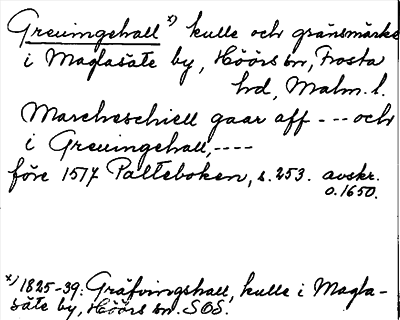 Greuingehall x) kulle och gränsmärke
i Maglasäte by, Höörs sn, Frosta
hd, Malm. l.
Marcheschiell gaar aff --- och
i Greuingehall, ----
före 1517 Palteboken, s. 253. avskr.
o. 1650.
x) 1825-39: Gräfvingshall, kulle i Magla-
säte by, Höörs sn. SOS.